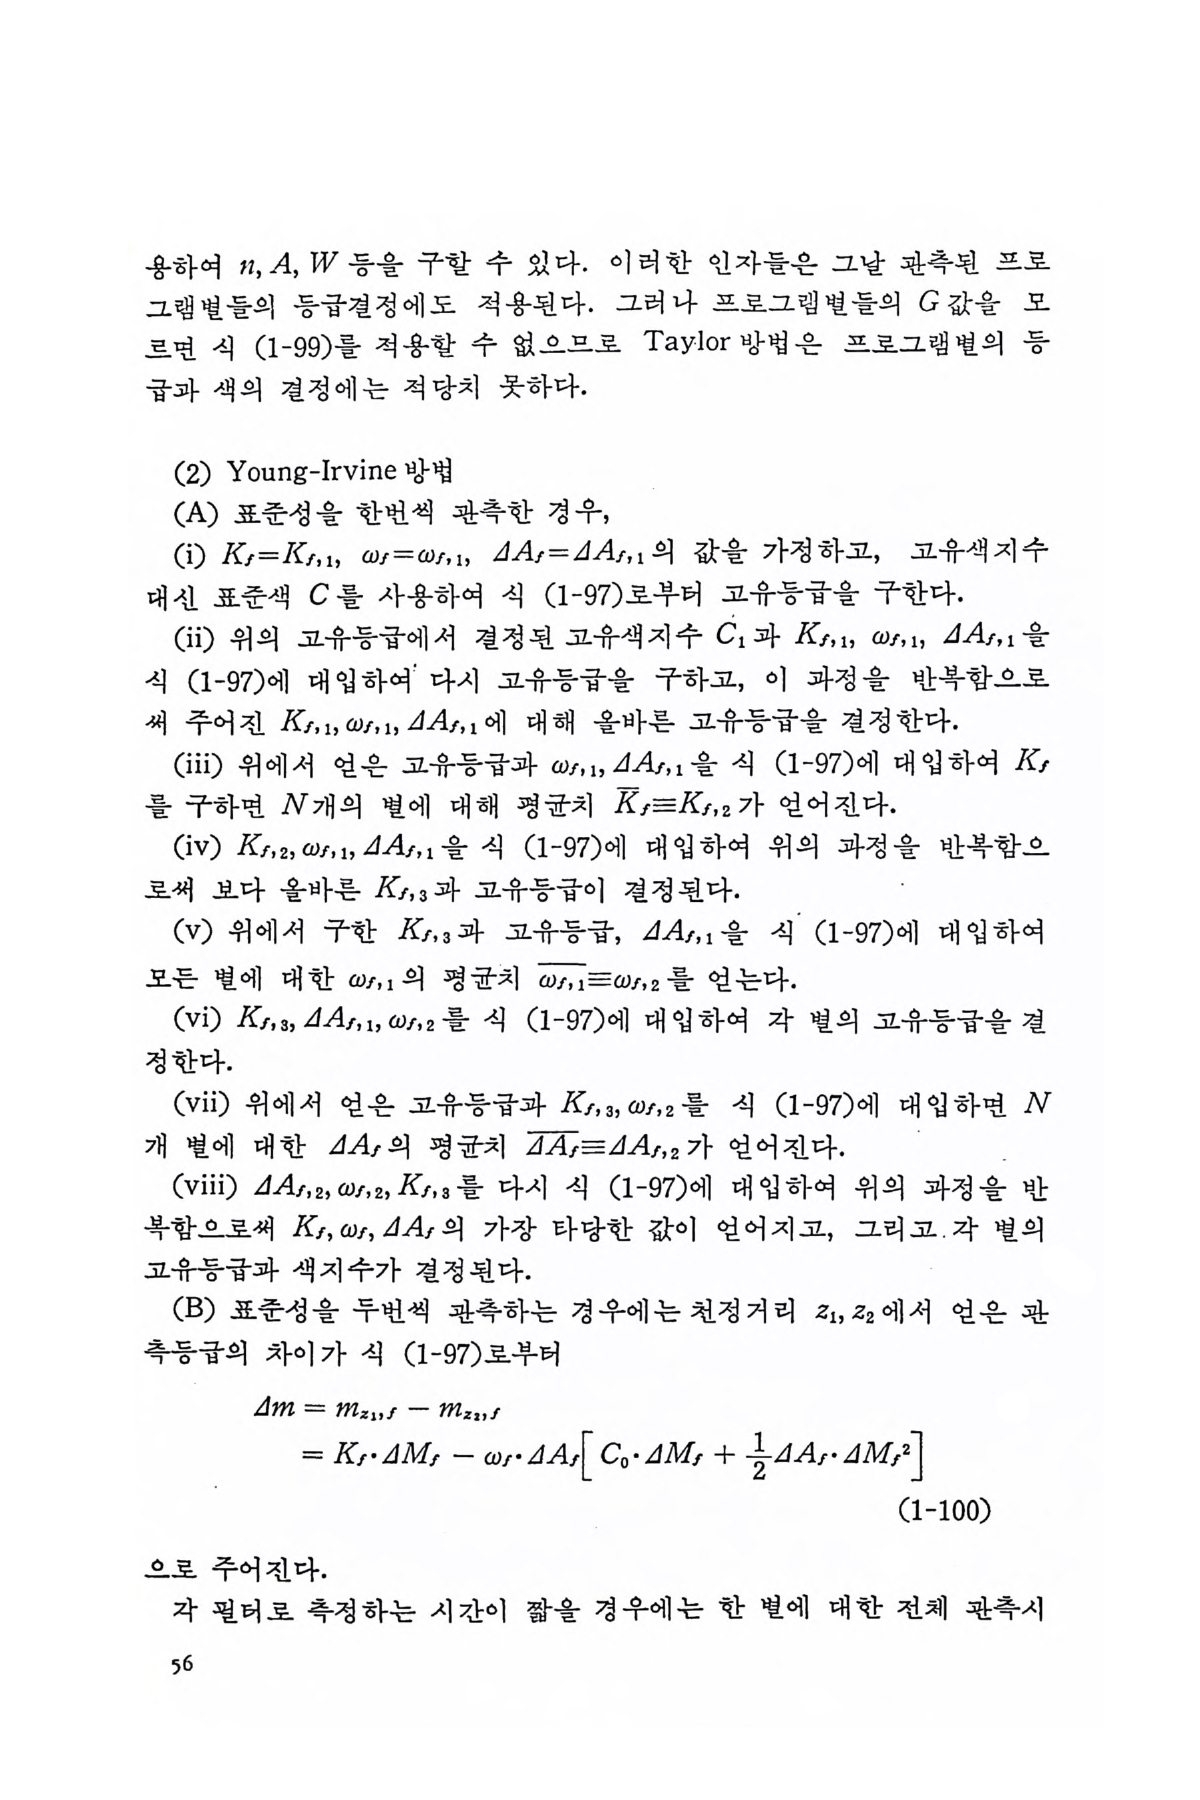 용하여 n, A, W 등을 구할 수 있다. 이러한 인자들은 그날 관측된 프로
그램별들의 등급결정에도 적용된다. 그러나 프로그램별들의 G값을 모
르면 식 (1-99)를 적용할 수 없으므로 Taylor 방법은 프로그램별의 등
급과 색의 결정에는 적당치 못하다.
(2) Young-Irvine 방법
(A) 표준성을 한번씩 관측한 경우,
(i) K_f=K_{f,1}, ω_f=ω_{f,1}, ΔA_f=ΔA_{f,1}의 값을 가정하고, 고유색지수
대신 표준색 C를 사용하여 식 (1-97)로부터 고유등급을 구한다.
(ii) 위의 고유등급에서 결정된 고유색지수 C₁과 K_{f,1}, ω_{f,1}, ΔA_{f,1}을
식 (1-97)에 대입하여 다시 고유등급을 구하고, 이 과정을 반복함으로
써 주어진 K_{f,1}, ω_{f,1}, ΔA_{f,1}에 대해 올바른 고유등급을 결정한다.
(iii) 위에서 얻은 고유등급과 ω_{f,1}, ΔA_{f,1}을 식 (1-97)에 대입하여 K_f
를 구하면 N개의 별에 대해 평균치 K̅_f≡K_{f,2}가 얻어진다.
(iv) K_{f,2}, ω_{f,1}, ΔA_{f,1}을 식 (1-97)에 대입하여 위의 과정을 반복함으
로써 보다 올바른 K_{f,3}과 고유등급이 결정된다.
(v) 위에서 구한 K_{f,3}과 고유등급, ΔA_{f,1}을 식 (1-97)에 대입하여
모든 별에 대한 ω_{f,1}의 평균치 \overline{ω_{f,1}}≡ω_{f,2}를 얻는다.
(vi) K_{f,3}, ΔA_{f,1}, ω_{f,2}를 식 (1-97)에 대입하여 각 별의 고유등급을 결
정한다.
(vii) 위에서 얻은 고유등급과 K_{f,3}, ω_{f,2}를 식 (1-97)에 대입하면 N
개 별에 대한 ΔA_f의 평균치 \overline{ΔA_f}≡ΔA_{f,2}가 얻어진다.
(viii) ΔA_{f,2}, ω_{f,2}, K_{f,3}를 다시 식 (1-97)에 대입하여 위의 과정을 반
복함으로써 K_f, ω_f, ΔA_f의 가장 타당한 값이 얻어지고, 그리고 각 별의
고유등급과 색지수가 결정된다.
(B) 표준성을 두번씩 관측하는 경우에는 천정거리 z₁, z₂에서 얻은 관
측등급의 차이가 식 (1-97)로부터
Δm = m_{z₁,f} − m_{z₂,f}
= K_f·ΔM_f − ω_f·ΔA_f[C₀·ΔM_f + \frac{1}{2}ΔA_f·ΔM_f²]
(1-100)
으로 주어진다.
각 필터로 측정하는 시간이 짧을 경우에는 한 별에 대한 전체 관측시
56